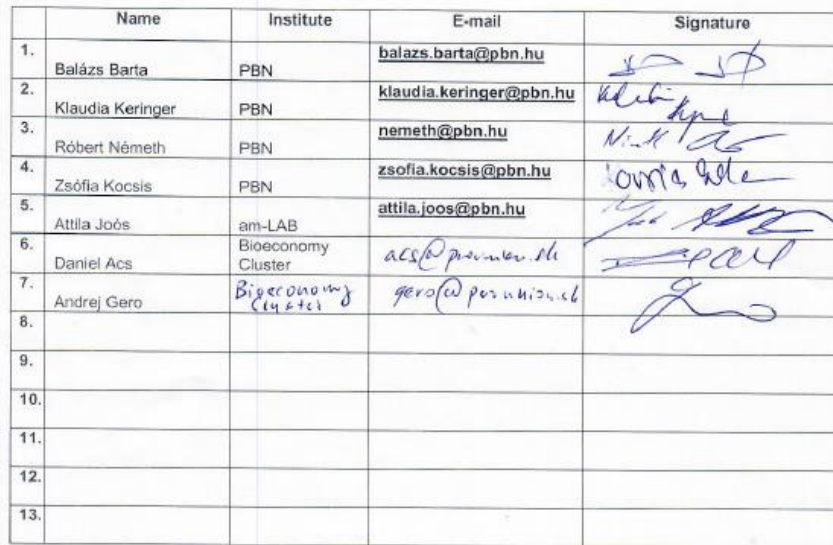 Name Institute E-mail Signature
1. Balázs Barta PBN balazs.barta@pbn.hu
2. Klaudia Keringer PBN klaudia.keringer@pbn.hu
3. Róbert Németh PBN nemeth@pbn.hu
4. Zsófia Kocsis PBN zsofia.kocsis@pbn.hu
5. Attila Joós am-LAB attila.joos@pbn.hu
6. Daniel Acs Bioeconomy
Cluster
7. Andrej Gero Bioeconomy
Cluster
8.
9.
10.
11.
12.
13.